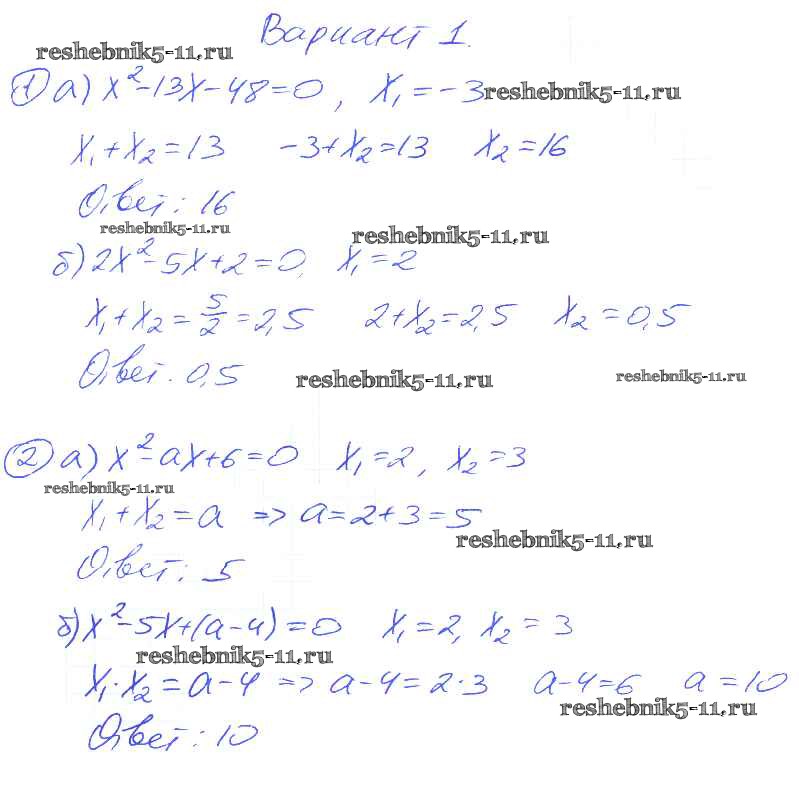 Вариант 1.
reshebnik5-11.ru
1) а) x²-13x-48=0, x₁=-3
reshebnik5-11.ru
x₁+x₂=13 -3+x₂=13 x₂=16
Ответ: 16
reshebnik5-11.ru
reshebnik5-11.ru
б) 2x²-5x+2=0, x₁=2
x₁+x₂=5/2=2,5 2+x₂=2,5 x₂=0,5
Ответ. 0,5
reshebnik5-11.ru
reshebnik5-11.ru
2) а) x²-ax+6=0 x₁=2, x₂=3
reshebnik5-11.ru
x₁+x₂=a => a=2+3=5
reshebnik5-11.ru
Ответ: 5
б) x²-5x+(a-4)=0 x₁=2, x₂=3
reshebnik5-11.ru
x₁·x₂=a-4 => a-4=2·3 a-4=6 a=10
reshebnik5-11.ru
Ответ: 10